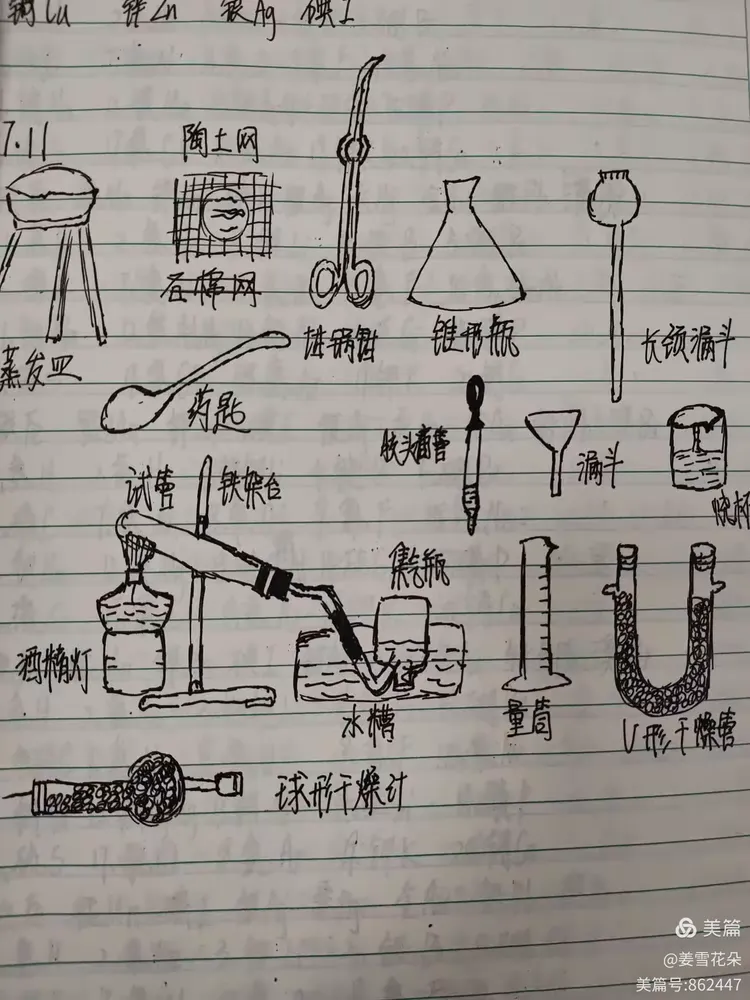 铜Cu 锌Zn 银Ag 碘I
7.11
陶土网
石棉网
坩埚钳
锥形瓶
长颈漏斗
蒸发皿
药匙
胶头滴管
漏斗
烧杯
试管
铁架台
集气瓶
酒精灯
水槽
量筒
U形干燥管
球形干燥计
美篇
@姜雪花朵
美篇号:862447